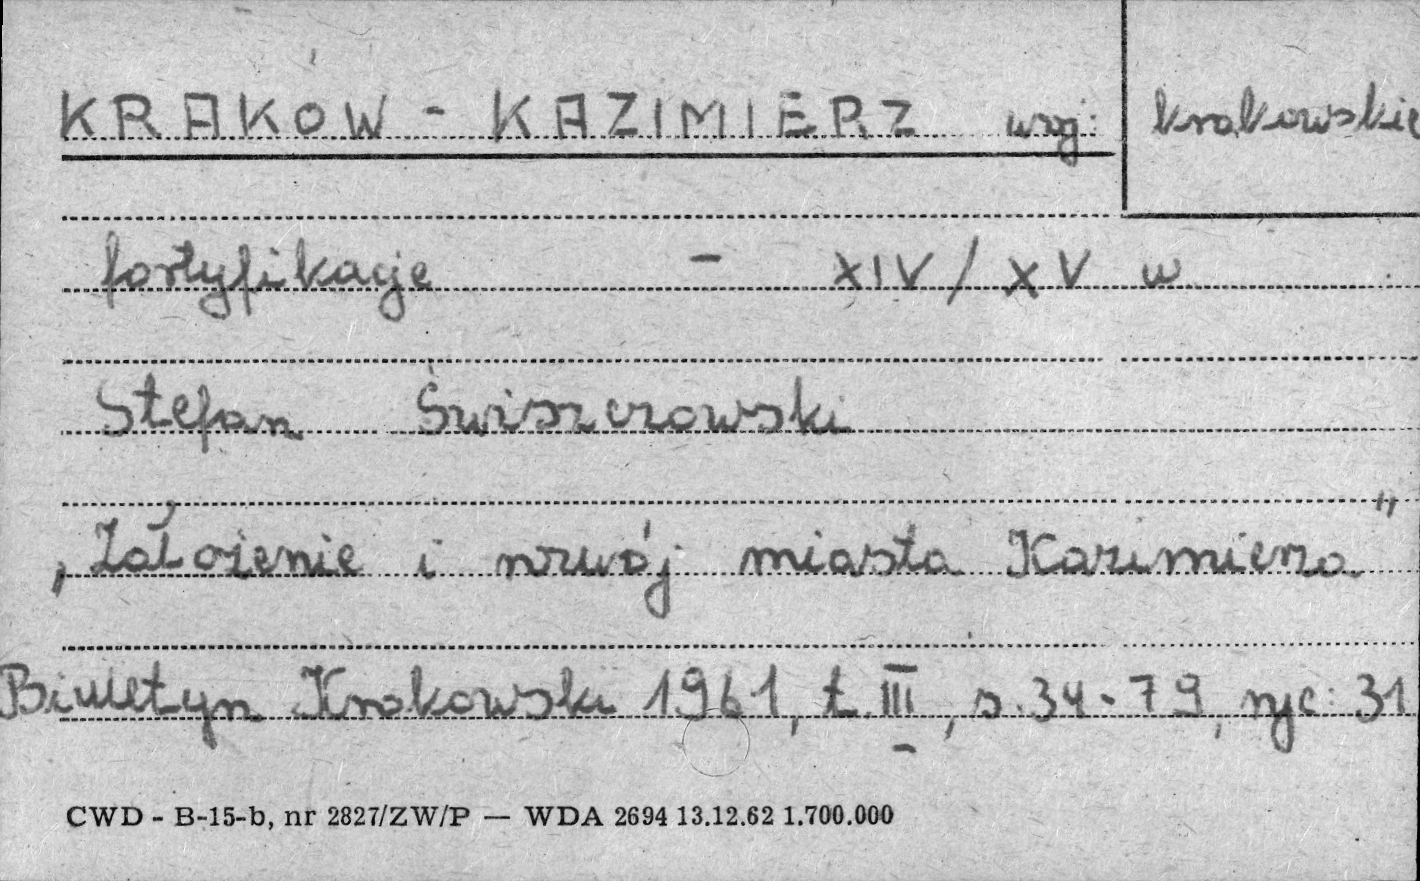 KRAKÓW - KAZIMIERZ woj: krakowskie
fortyfikacje - XIV/XV w
Stefan Świszczowski
"Założenie i rozwój miasta Kazimierza"
Biuletyn Krakowski 1961, t. III, s. 34-79, ryc: 31
CWD - B-15-b, nr 2827/ZW/P — WDA 2694 13.12.62 1.700.000